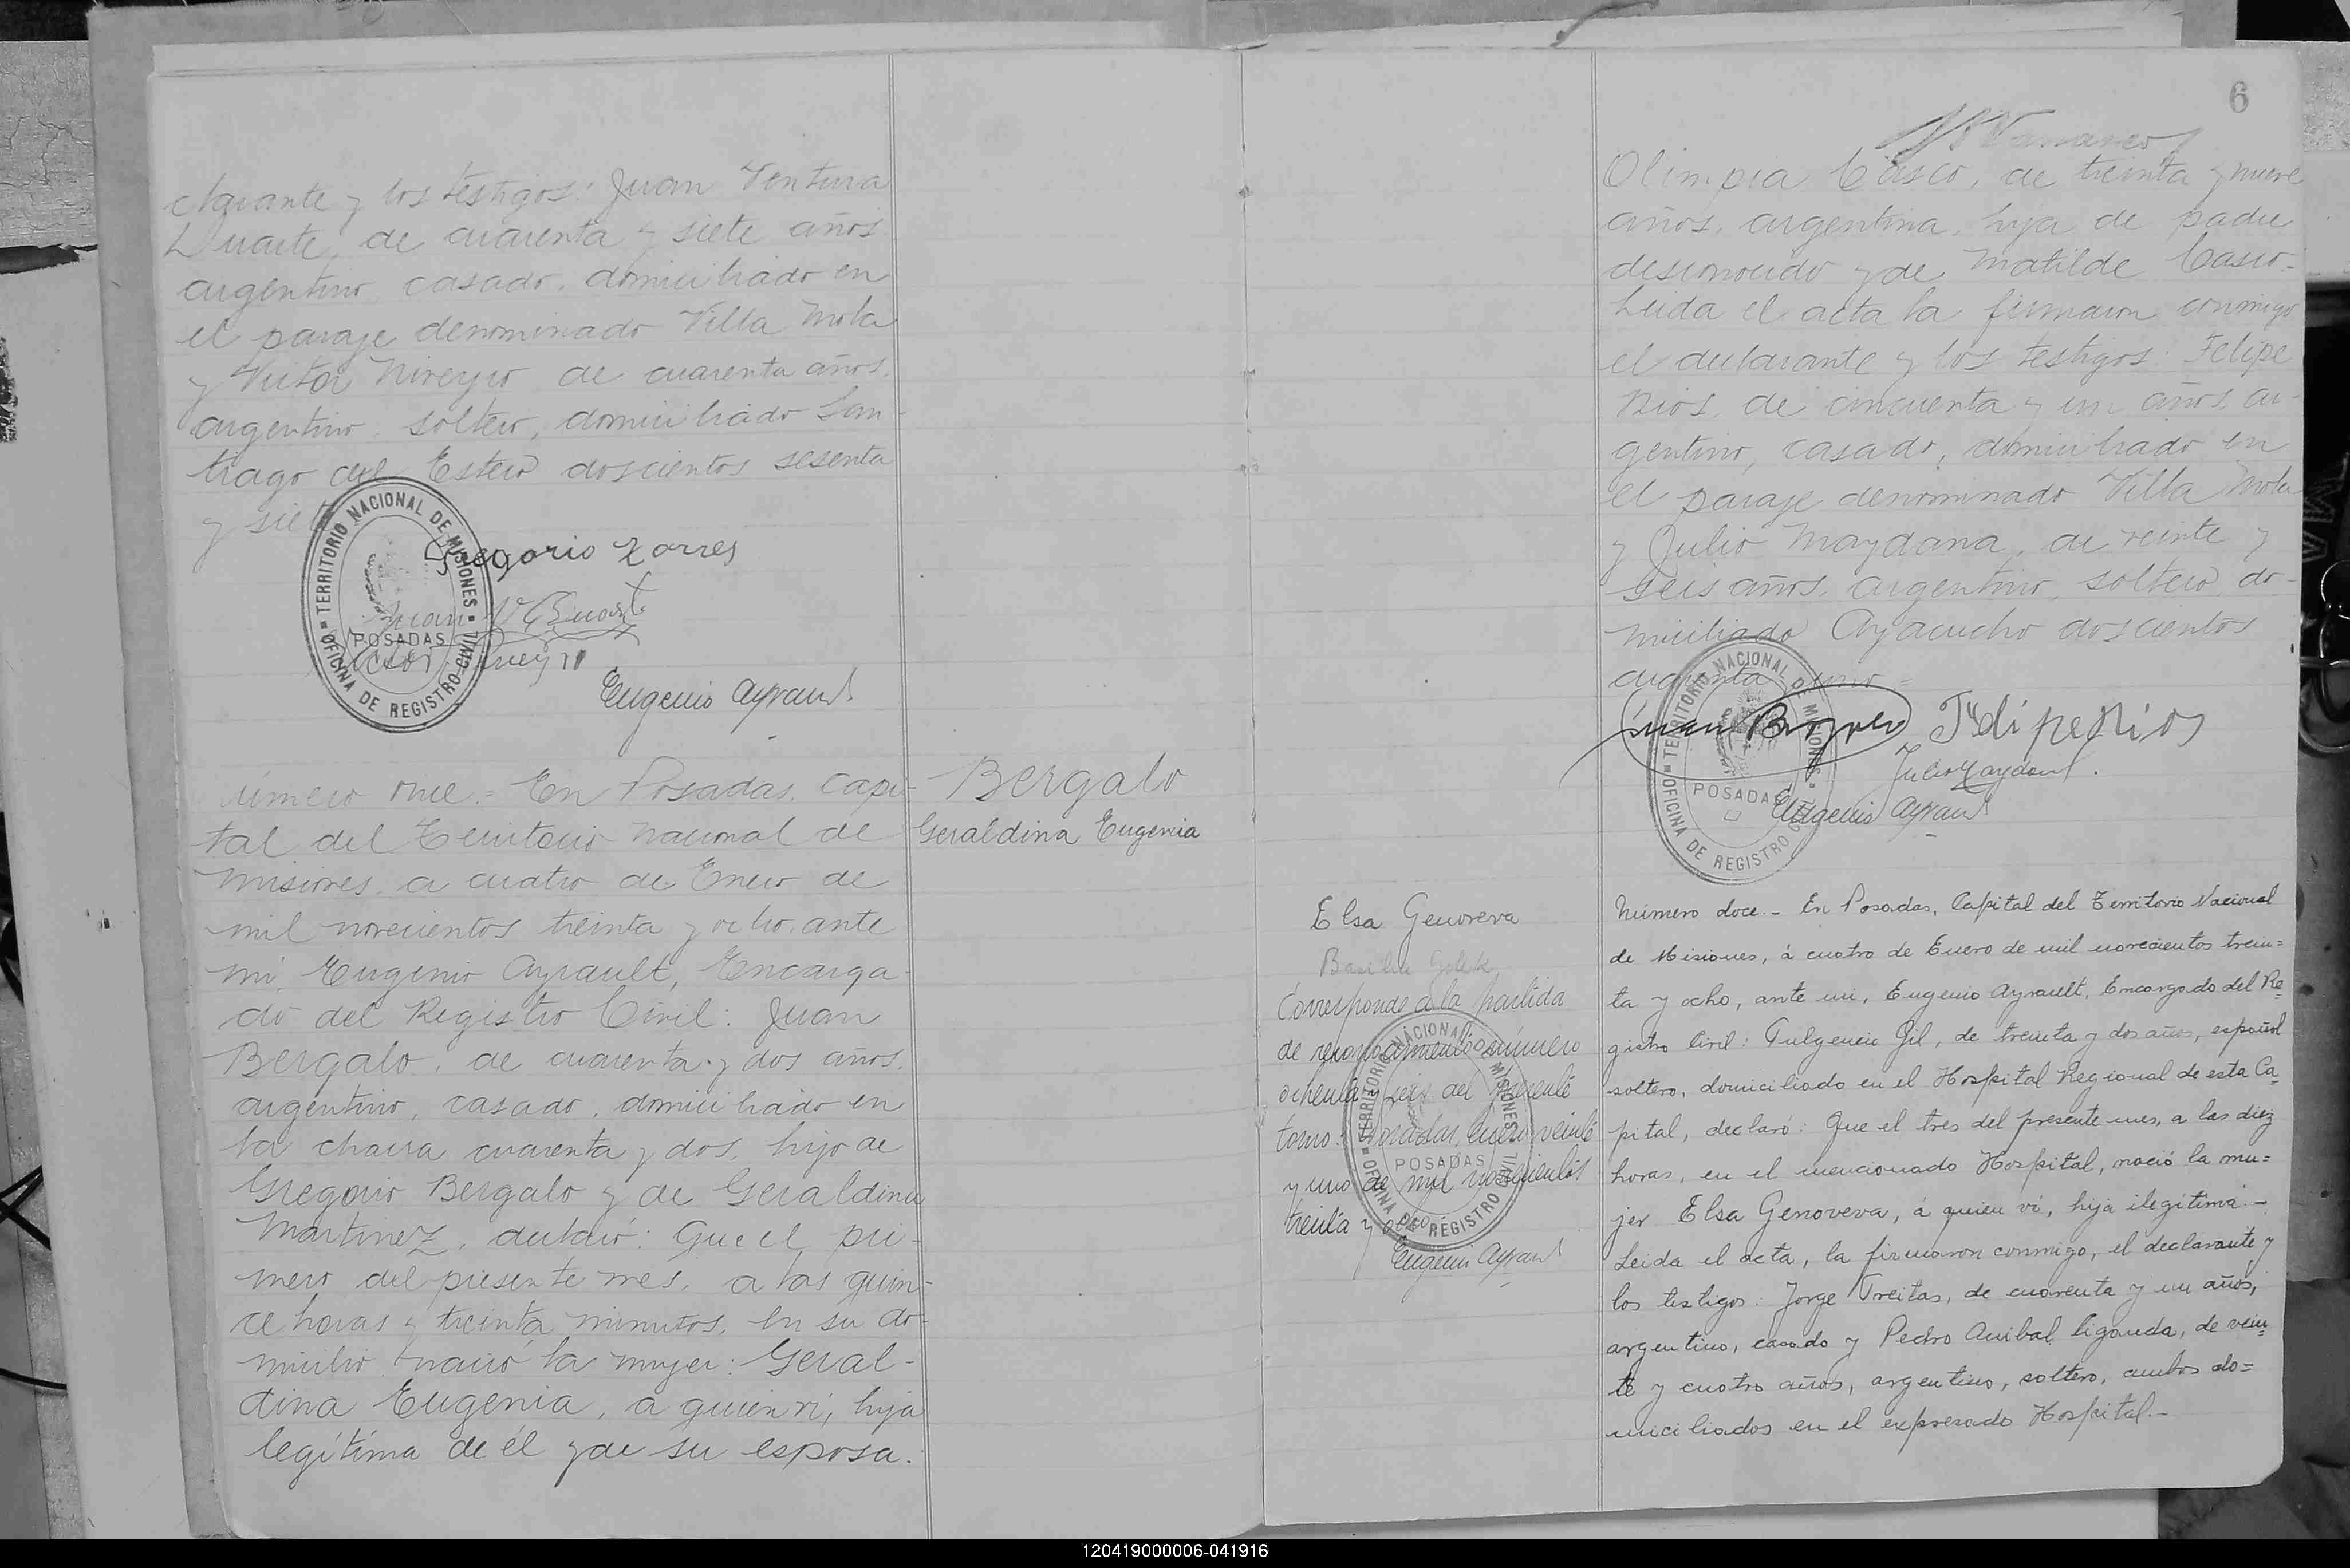 clarante y los testigos: Juan Ventura
Duarte, de cuarenta y siete años
argentino, casado, domiciliado en
el paraje denominado Villa Mola
y Victor de cuarenta años,
argentino, soltero, domiciliado San-
tiago del Estero doscientos sesenta
y siete
Gregorio Torres
Juan V. Duarte
Victor
Eugenio Ayrault
TERRITORIO NACIONAL DE MISIONES
POSADAS
OFICINA DE REGISTRO CIVIL
Número once.= En Posadas, Capi-
tal del Territorio Nacional de
Misiones, a cuatro de Enero de
mil novecientos treinta y ocho, ante
mi, Eugenio Ayrault, Encarga-
do del Registro Civil: Juan
Bergalo, de cuarenta y dos años,
argentino, casado, domiciliado en
la chacra cuarenta y dos, hijo de
Gregorio Bergalo y de Geraldina
Martinez, declaró: Que el pri-
mero del presente mes, a las quin-
ce horas y treinta minutos, en su do-
micilio nació la mujer: Geral-
dina Eugenia, a quien ví, hija
legítima de él y de su esposa.
Bergalo
Geraldina Eugenia
6
Olimpia Casco, de treinta y nueve
años, argentina, hija de padre
desconocido y de Matilde Casco.-
Leida el acta la firmaron conmigo
el declarante y los testigos: Felipe
Rios, de cincuenta y un años, ar-
gentino, casado, domiciliado en
el paraje denominado Villa Mola
y Julio Maydana, de veinte y
seis años, argentino, soltero, do-
miciliado Ayacucho doscientos
cuarenta y uno =
Juan Bergalo Felipe Rios
Julio Maydana.
Eugenio Ayrault
TERRITORIO NACIONAL DE MISIONES
POSADAS
OFICINA DE REGISTRO CIVIL
Elsa Genoveva
Corresponde a la partida
de reconocimiento número
ochenta y seis del presente
tomo: Posadas, enero veinte
y uno de mil novecientos
treinta y ocho.
Eugenio Ayrault
TERRITORIO NACIONAL DE MISIONES
POSADAS
OFICINA DE REGISTRO CIVIL
Número doce.- En Posadas, Capital del Territorio Nacional
de Misiones, á cuatro de Enero de mil novecientos trein=
ta y ocho, ante mi, Eugenio Ayrault, Encargado del Re=
gistro Civil: Fulgencio Gil, de treinta y dos años, español
soltero, domiciliado en el Hospital Regional de esta Ca=
pital, declaró: Que el tres del presente mes, a las diez
horas, en el mencionado Hospital, nació la mu=
jer Elsa Genoveva, á quien ví, hija ilegítima.-
Leida el acta, la firmaron conmigo, el declarante y
los testigos: Jorge Freitas, de cuarenta y un años,
argentino, casado y Pedro Anibal Liganda, de vein=
te y cuatro años, argentino, soltero, ambos do=
miciliados en el expresado Hospital.-
120419000006-041916